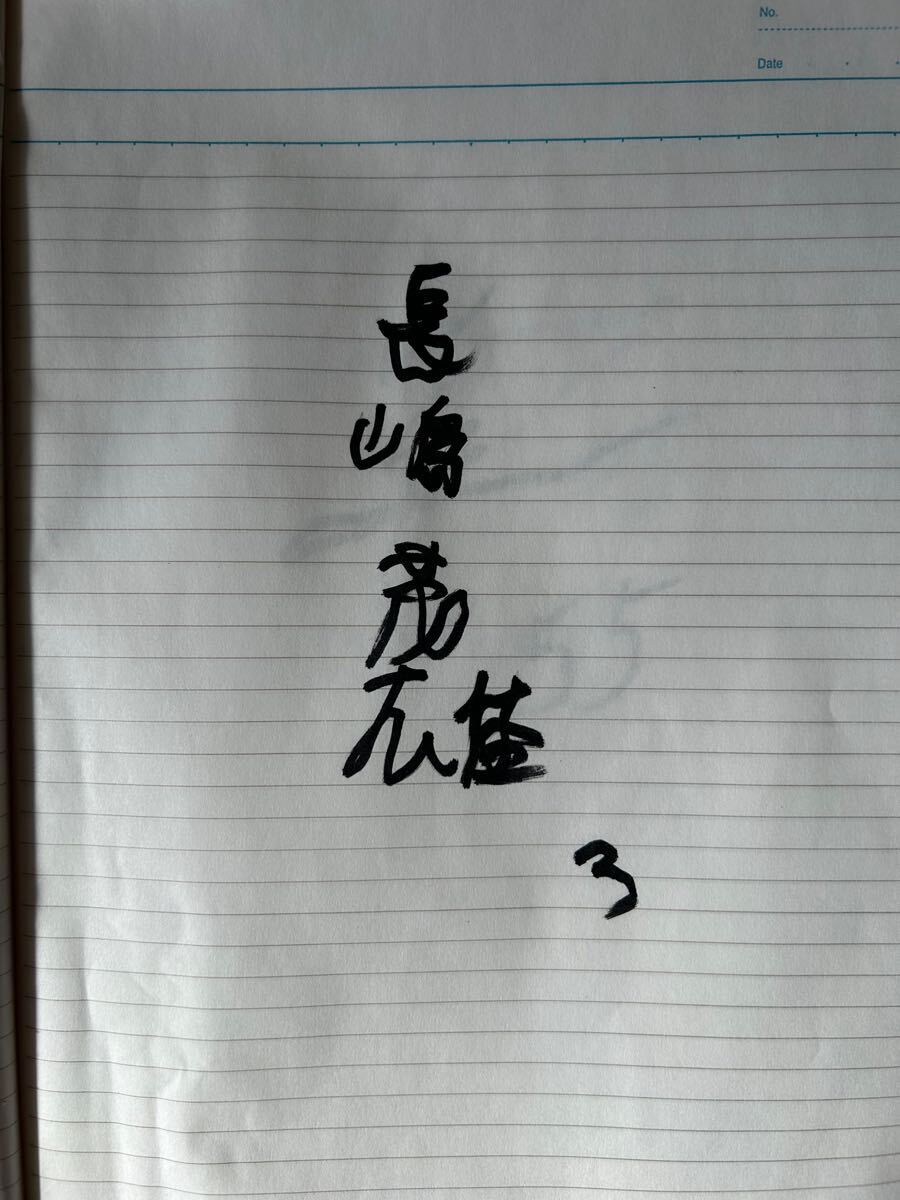 No.
Date
長嶋茂雄
3